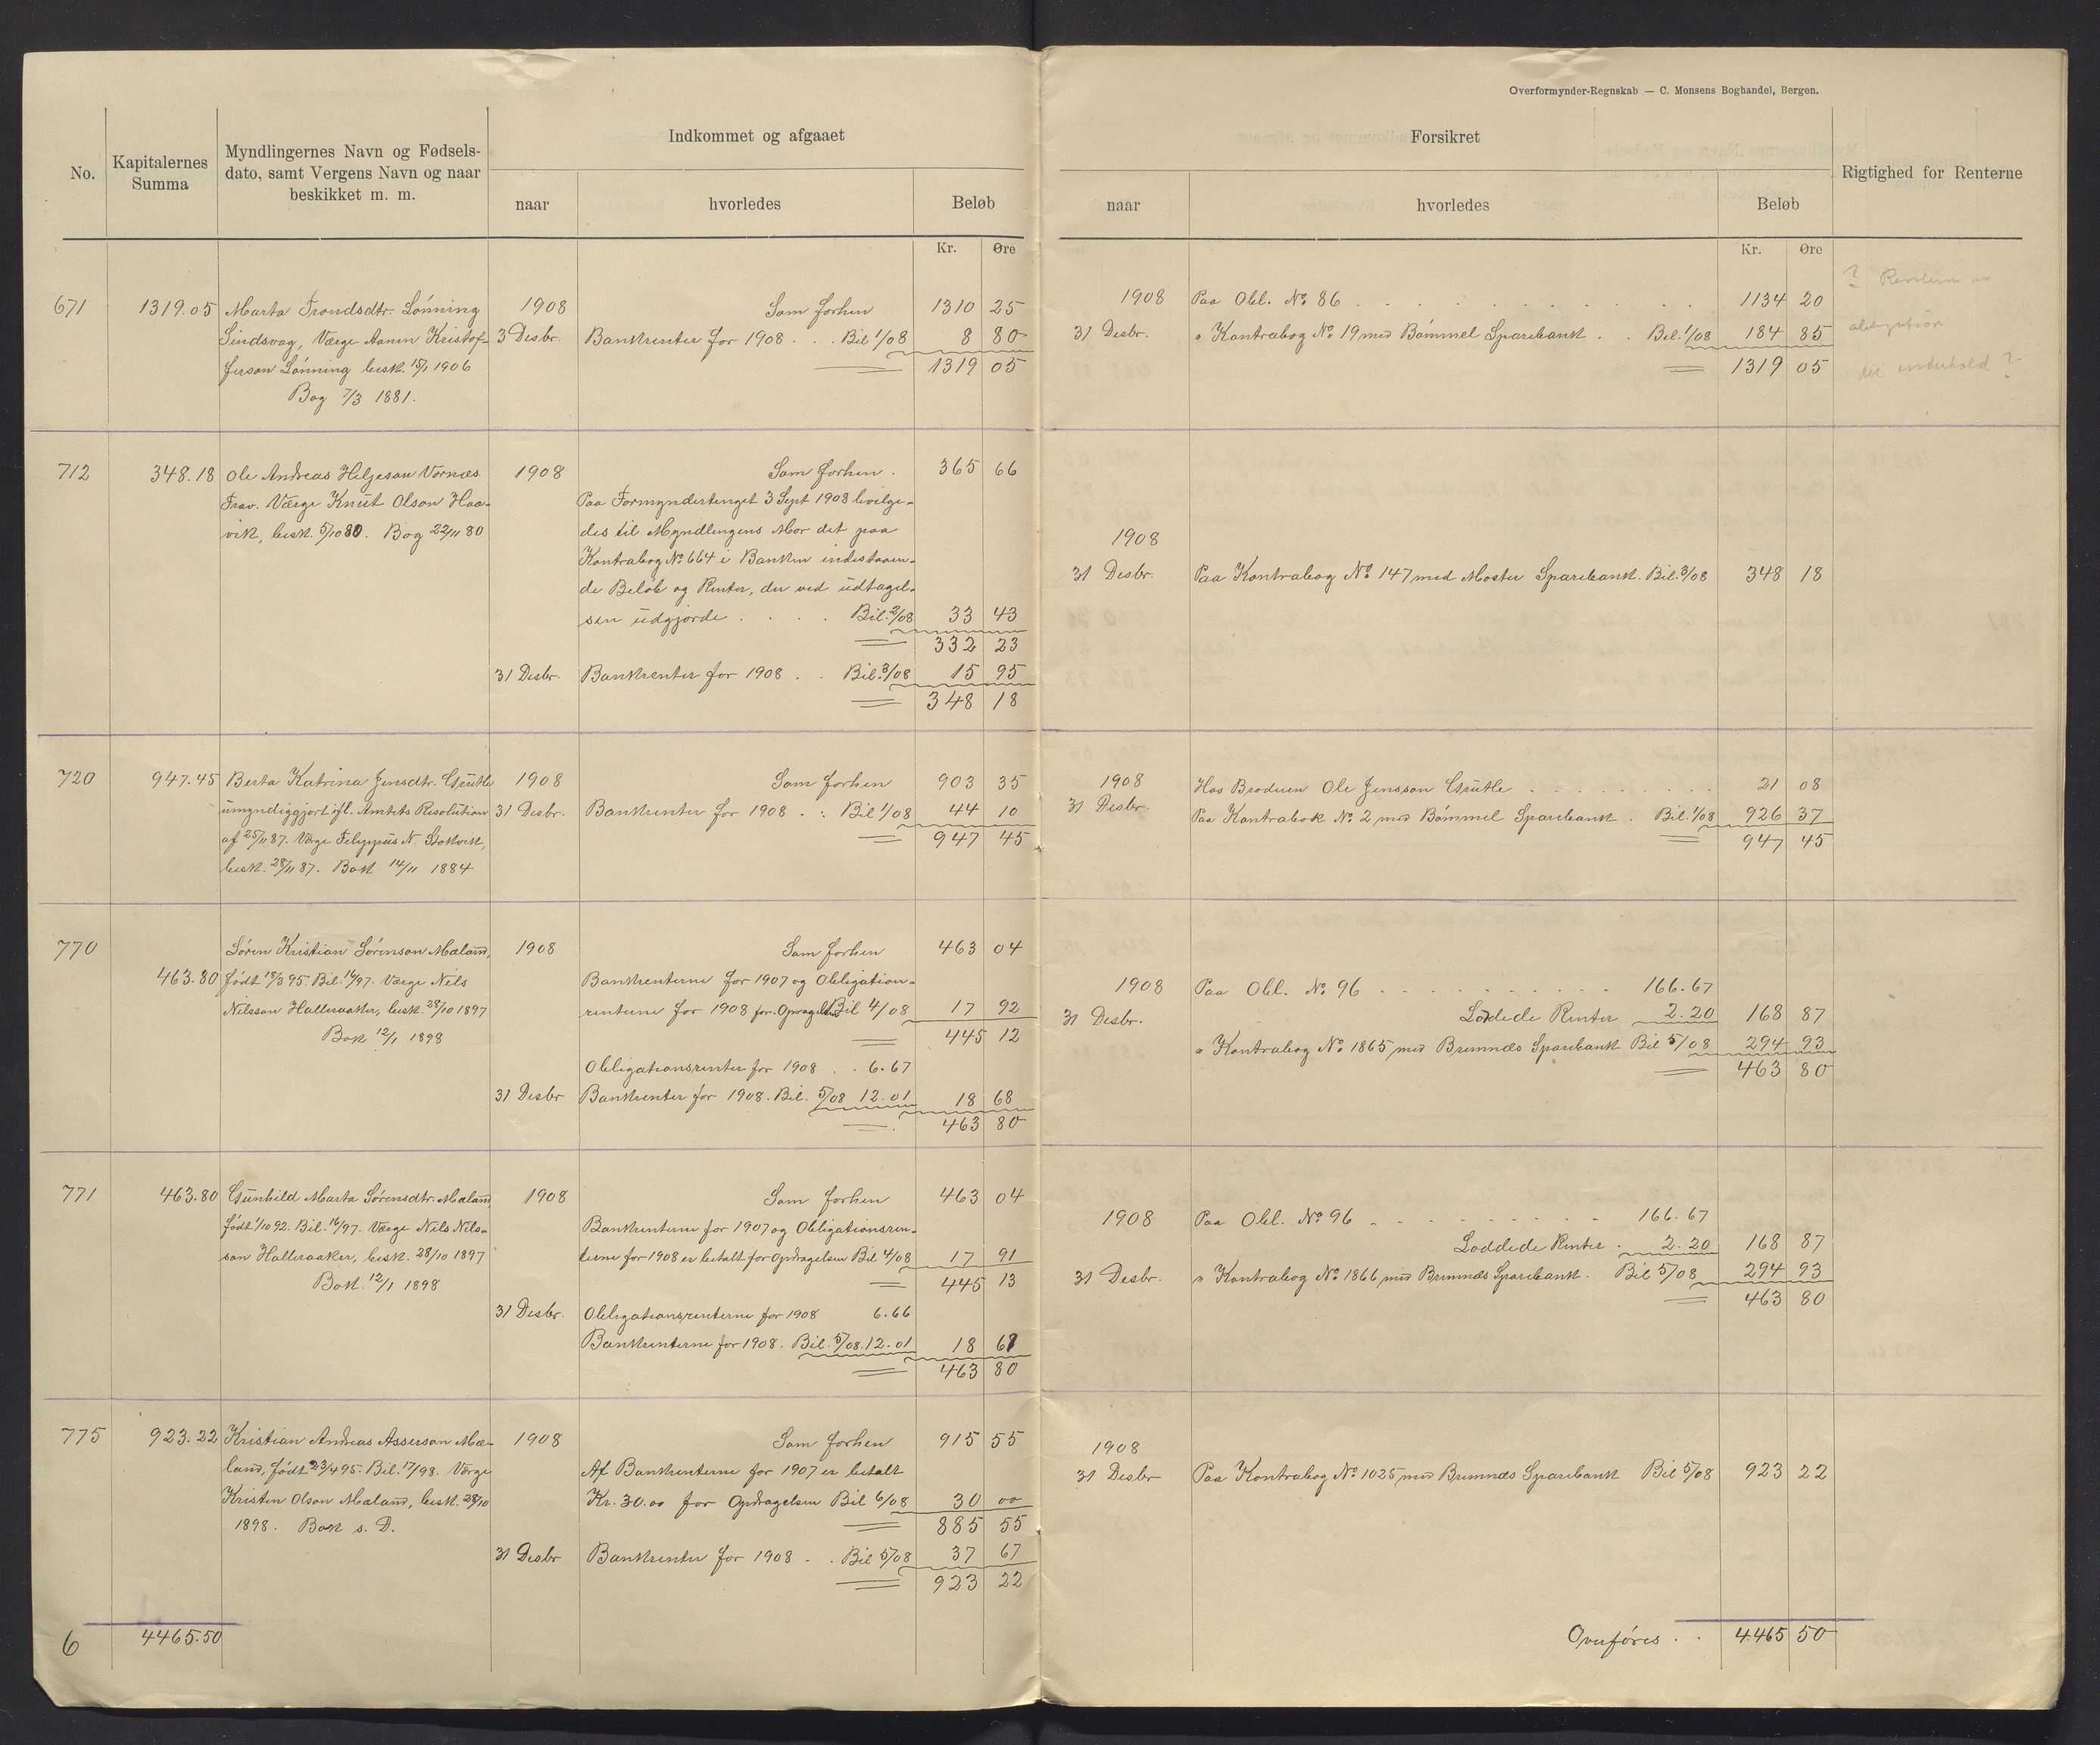 Overformynder-Regnskab — C. Monsens Boghandel, Bergen.
No.
Kapitalernes
Summa
Myndlingernes Navn og Fødsels-
dato, samt Vergens Navn og naar
beskikket m. m.
Indkommet og afgaaet
naar
hvorledes
Beløb
Kr. Øre
Forsikret
naar
hvorledes
Beløb
Kr. Øre
Rigtighed for Renterne
671 1319.05 Marta Trondsdtr. Lønning 1908 Som forhen 1310 25
Sindsvag, Værge Aanen Kristof- 3 Desbr. Bankrenter for 1908 . . Bil 1/08 8 80
ferson Lønning besk. 15/1 1906 1319 05
Bog 7/3 1881.
1908 Paa Obl. No 86 1134 20
31 Desbr. " Kontrabog No 19 med Bømmel Sparebank . . Bil. 1/08 184 85
1319 05
? Renterne av
obligation
til underhold ?
712 348.18 Ole Andreas Heljeson Vornæs 1908 Som forhen . 365 66
Frav. Værge Knut Olson Haa-
vik, besk. 5/10 80. Bog 22/11 80
Paa Formyndertinget 3 Sept 1908 bevilge-
des til Myndlingens Mor det paa
Kontrabog No 664 i Banken indestaaen-
de Beløb og Renter, der ved udtagel-
sen udgjorde . . . . Bil. 2/08 33 43
332 23
31 Desbr. Bankrenter for 1908 . . Bil. 3/08 15 95
348 18
1908
31 Desbr. Paa Kontrabog No 147 med Moster Sparebank. Bil. 3/08 348 18
720 947.45 Berta Katrina Jensdtr. Grutle 1908 Som forhen 903 35
umyndiggjort ifl. Amtets Resolution 31 Desbr. Bankrenter for 1908 . . Bil 1/08 44 10
af 25/11 87. Værge Filippus N. Stokvik, 947 45
besk. 28/11 87. Bok 14/11 1884
1908 Hos Broderen Ole Jensson Grutle 21 08
31 Desbr. Paa Kontrabok No 2 med Bømmel Sparebank . Bil. 1/08 926 37
947 45
770 Søren Kristian Sørenson Mæland, 1908 Som forhen 463 04
463.80 født 18/3 95. Bil. 16/97. Værge Nils
Nilsson Halleraaker, besk. 28/10 1897
Bok 12/1 1898
Bankrenterne for 1907 og Obligation-
renterne for 1908 for Opdragelsen Bil 4/08 17 92
445 12
Obligationsrenter for 1908 . . 6.67
31 Desbr Bankrenter for 1908. Bil. 5/08 12.01 18 68
463 80
1908 Paa Obl. No 96 166.67
31 Desbr. Loddede Renter 2.20 168 87
" Kontrabog No 1865 med Bremnæs Sparebank Bil 5/08 294 93
463 80
771 463.80 Gunhild Marta Sørensdtr. Mæland, 1908 Som forhen 463 04
født 1/10 92. Bil. 16/97. Værge Nils Nils-
son Halleraaker, besk. 28/10 1897
Bok. 12/1 1898
Bankrenterne for 1907 og Obligationsren-
terne for 1908 er betalt for Opdragelsen Bil 4/08 17 91
445 13
31 Desbr. Obligationsrenterne for 1908 6.66
Bankrenterne for 1908. Bil. 5/08. 12.01 18 67
463 80
1908 Paa Obl. No 96 166.67
Loddede Renter . 2.20 168 87
31 Desbr. " Kontrabog No 1866 med Bremnæs Sparebank. Bil 5/08 294 93
463 80
775 923.22 Kristian Andreas Asserson Mæ- 1908 Som forhen 915 55
land, født 23/4 95. Bil. 17/98. Værge
Kristen Olson Mæland, besk. 28/10
1898. Bok s. D.
Af Bankrenterne for 1907 er betalt
Kr. 30.00 for Opdragelsen Bil 6/08 30 00
885 55
31 Desbr Bankrenter for 1908 . . Bil 5/08 37 67
923 22
1908
31 Desbr Paa Kontrabog No 1025 med Bremnæs Sparebank Bil 5/08 923 22
6 4465.50
Overføres . . 4465 50